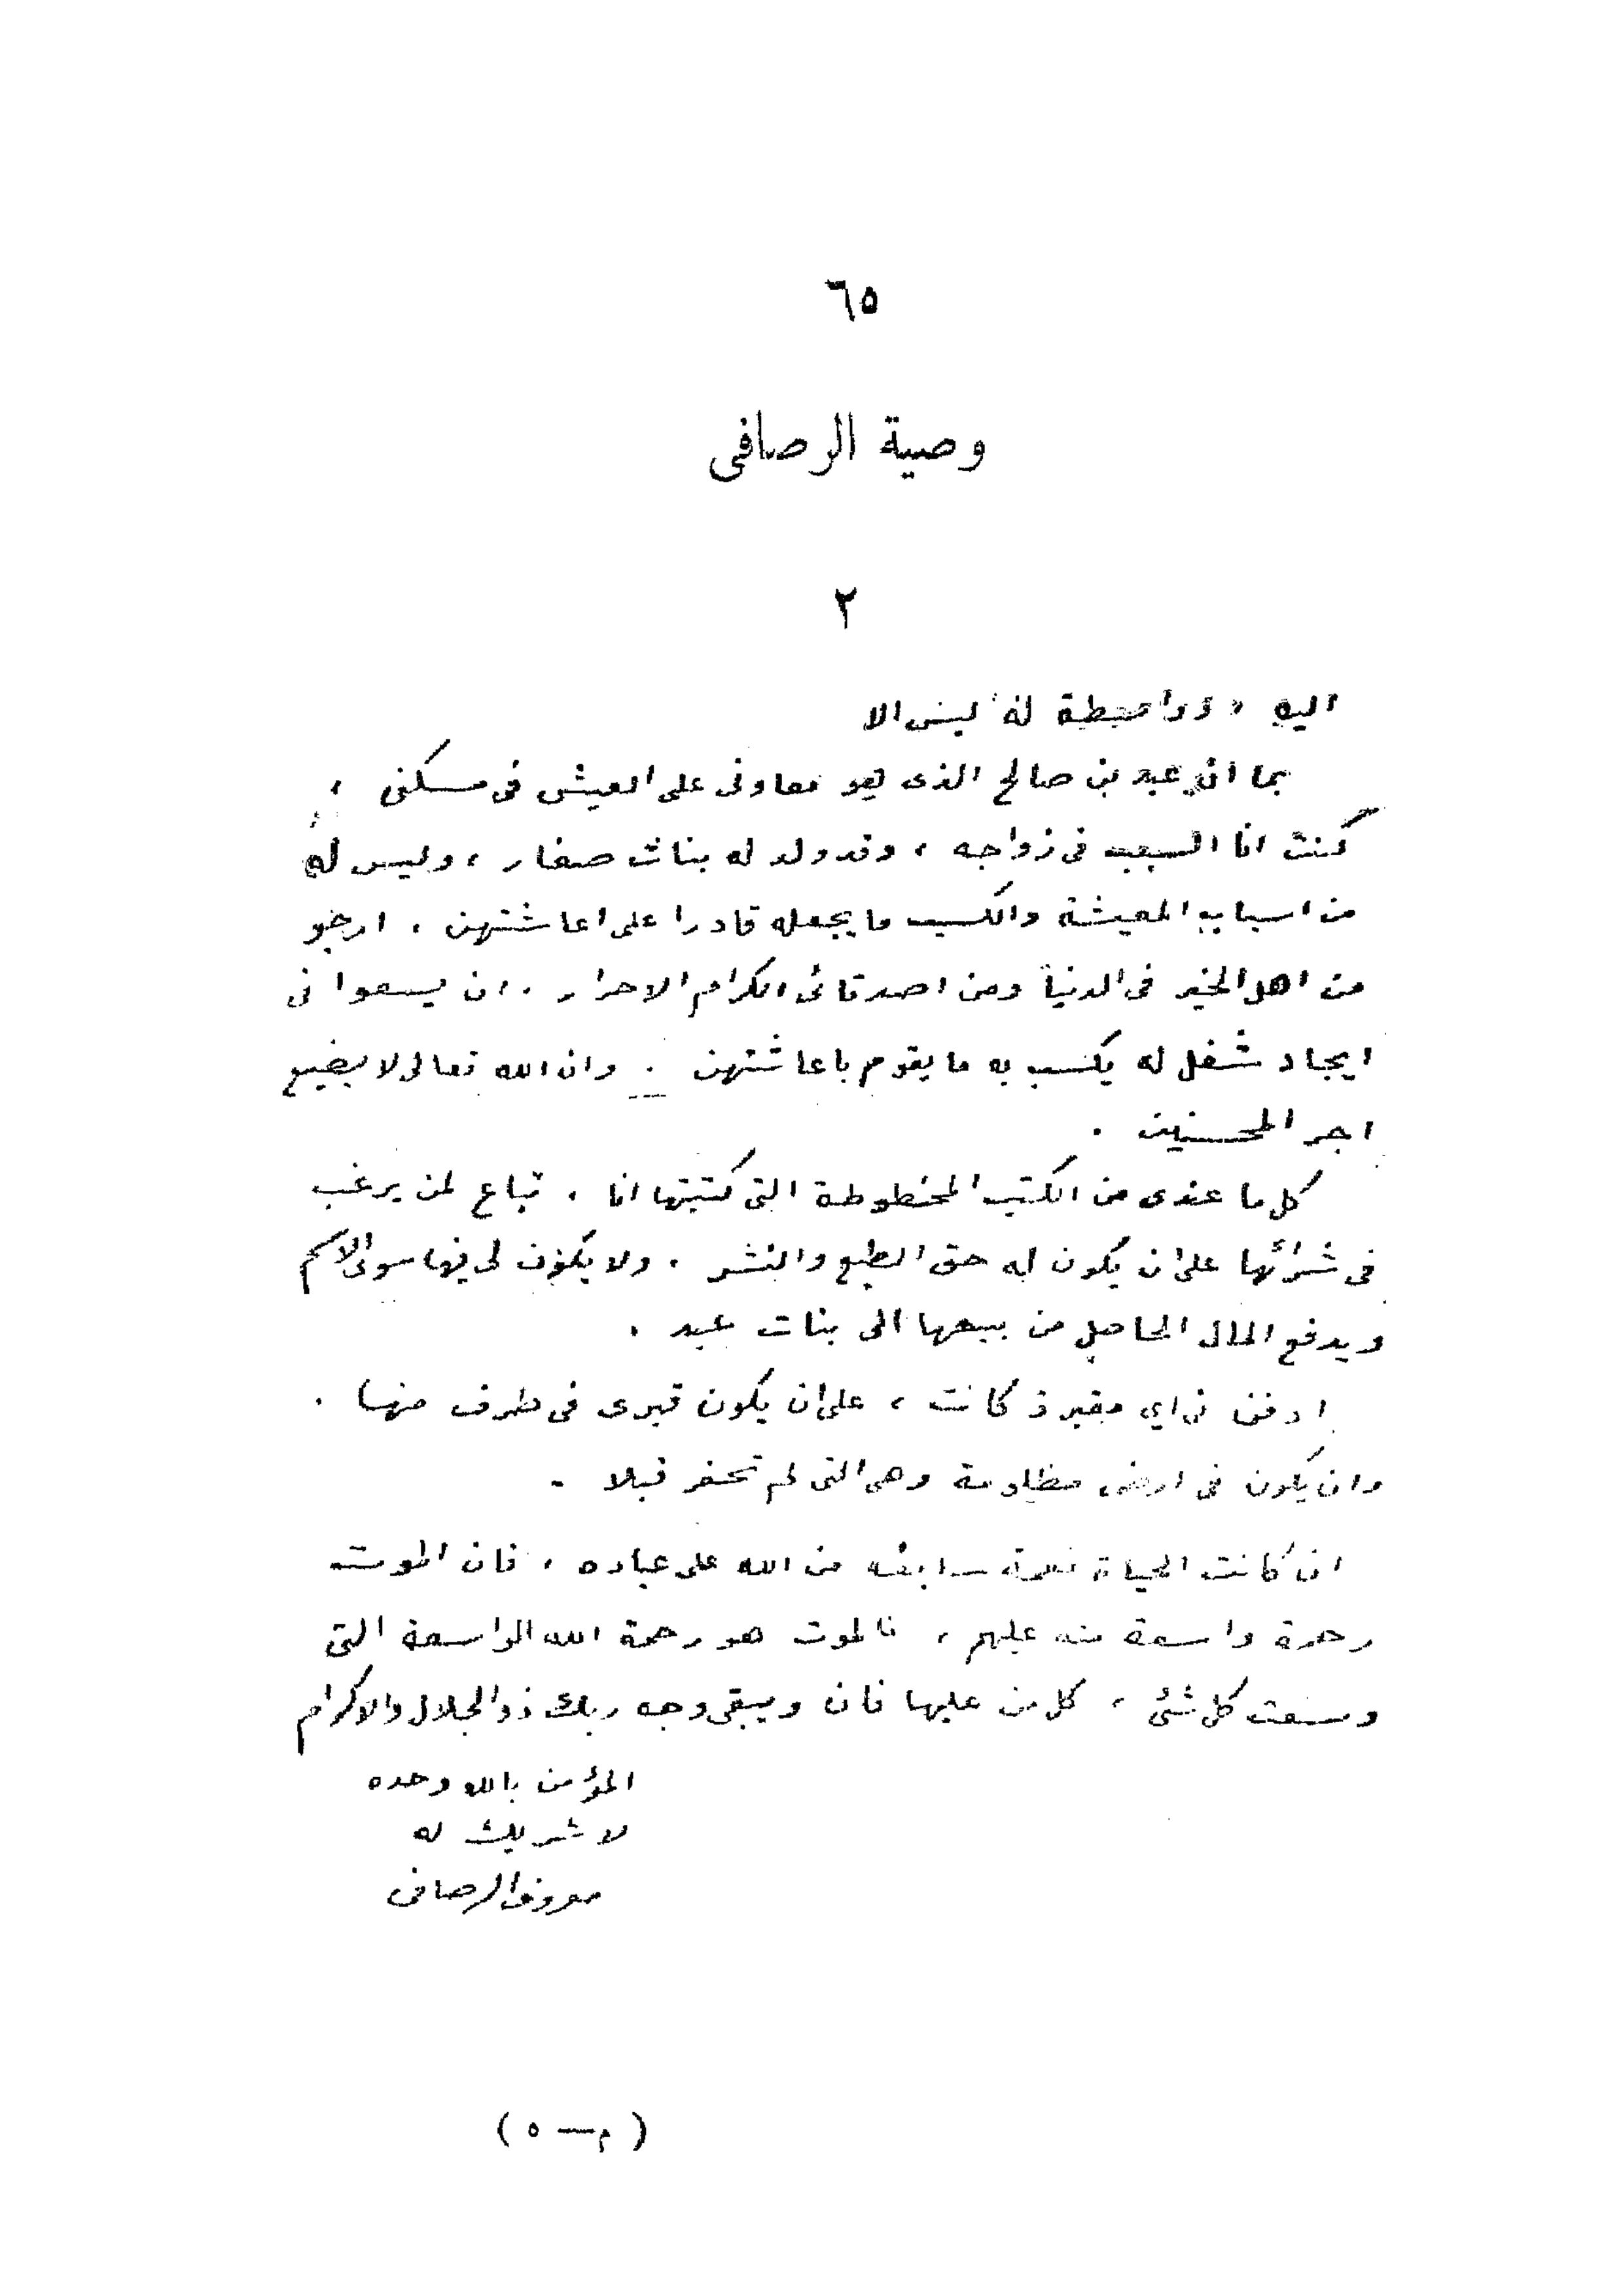 ٦٥
وصية الرصافى
٢
اليه لبس الا
بما ان عبد بن صالح الذى هو معاونى على العيش فى مسكنى ،
كنت انا السبب فى زواجه ، وقد ولد له بنات صغار ، وليس له
من اسباب المعيشة والكسب ما يجعله قادرا على اعاشتهن . ارجو
من اهل الخير فى الدنيا ومن اصدقائى الكرام الاحرار . ان يسعوا فى
ايجاد شغل له يكسب به ما يقوم باعاشتهن . وان الله تعالى لا يضيع
اجر المحسنين .
كل ما عندى من الكتب المخطوطة التى كتبتها انا . تباع لمن يرغب
فى شرائها على ان يكون له حق الطبع والنشر . ولا يكون لى فيها سوى الاسم
ويدفع المال الحاصل من بيعها الى بنات عبد .
ادفن فى اي مقبرة كانت ، على ان يكون قبرى فى طرف منها .
وان يكون فى ارض مظلومة وهى التى لم تحفر قبلا .
ان كانت الحياة نعمة سابغة من الله على عباده ، فان الموت
رحمة واسعة منه عليهم ، فالموت هو رحمة الله الواسعة التى
وسعت كل شئ ، كل من عليها فان ويبقى وجه ربك ذو الجلال والاكرام
المؤمن بالله وحده
لا شريك له
معروف الرصافى
( م — ٥ )